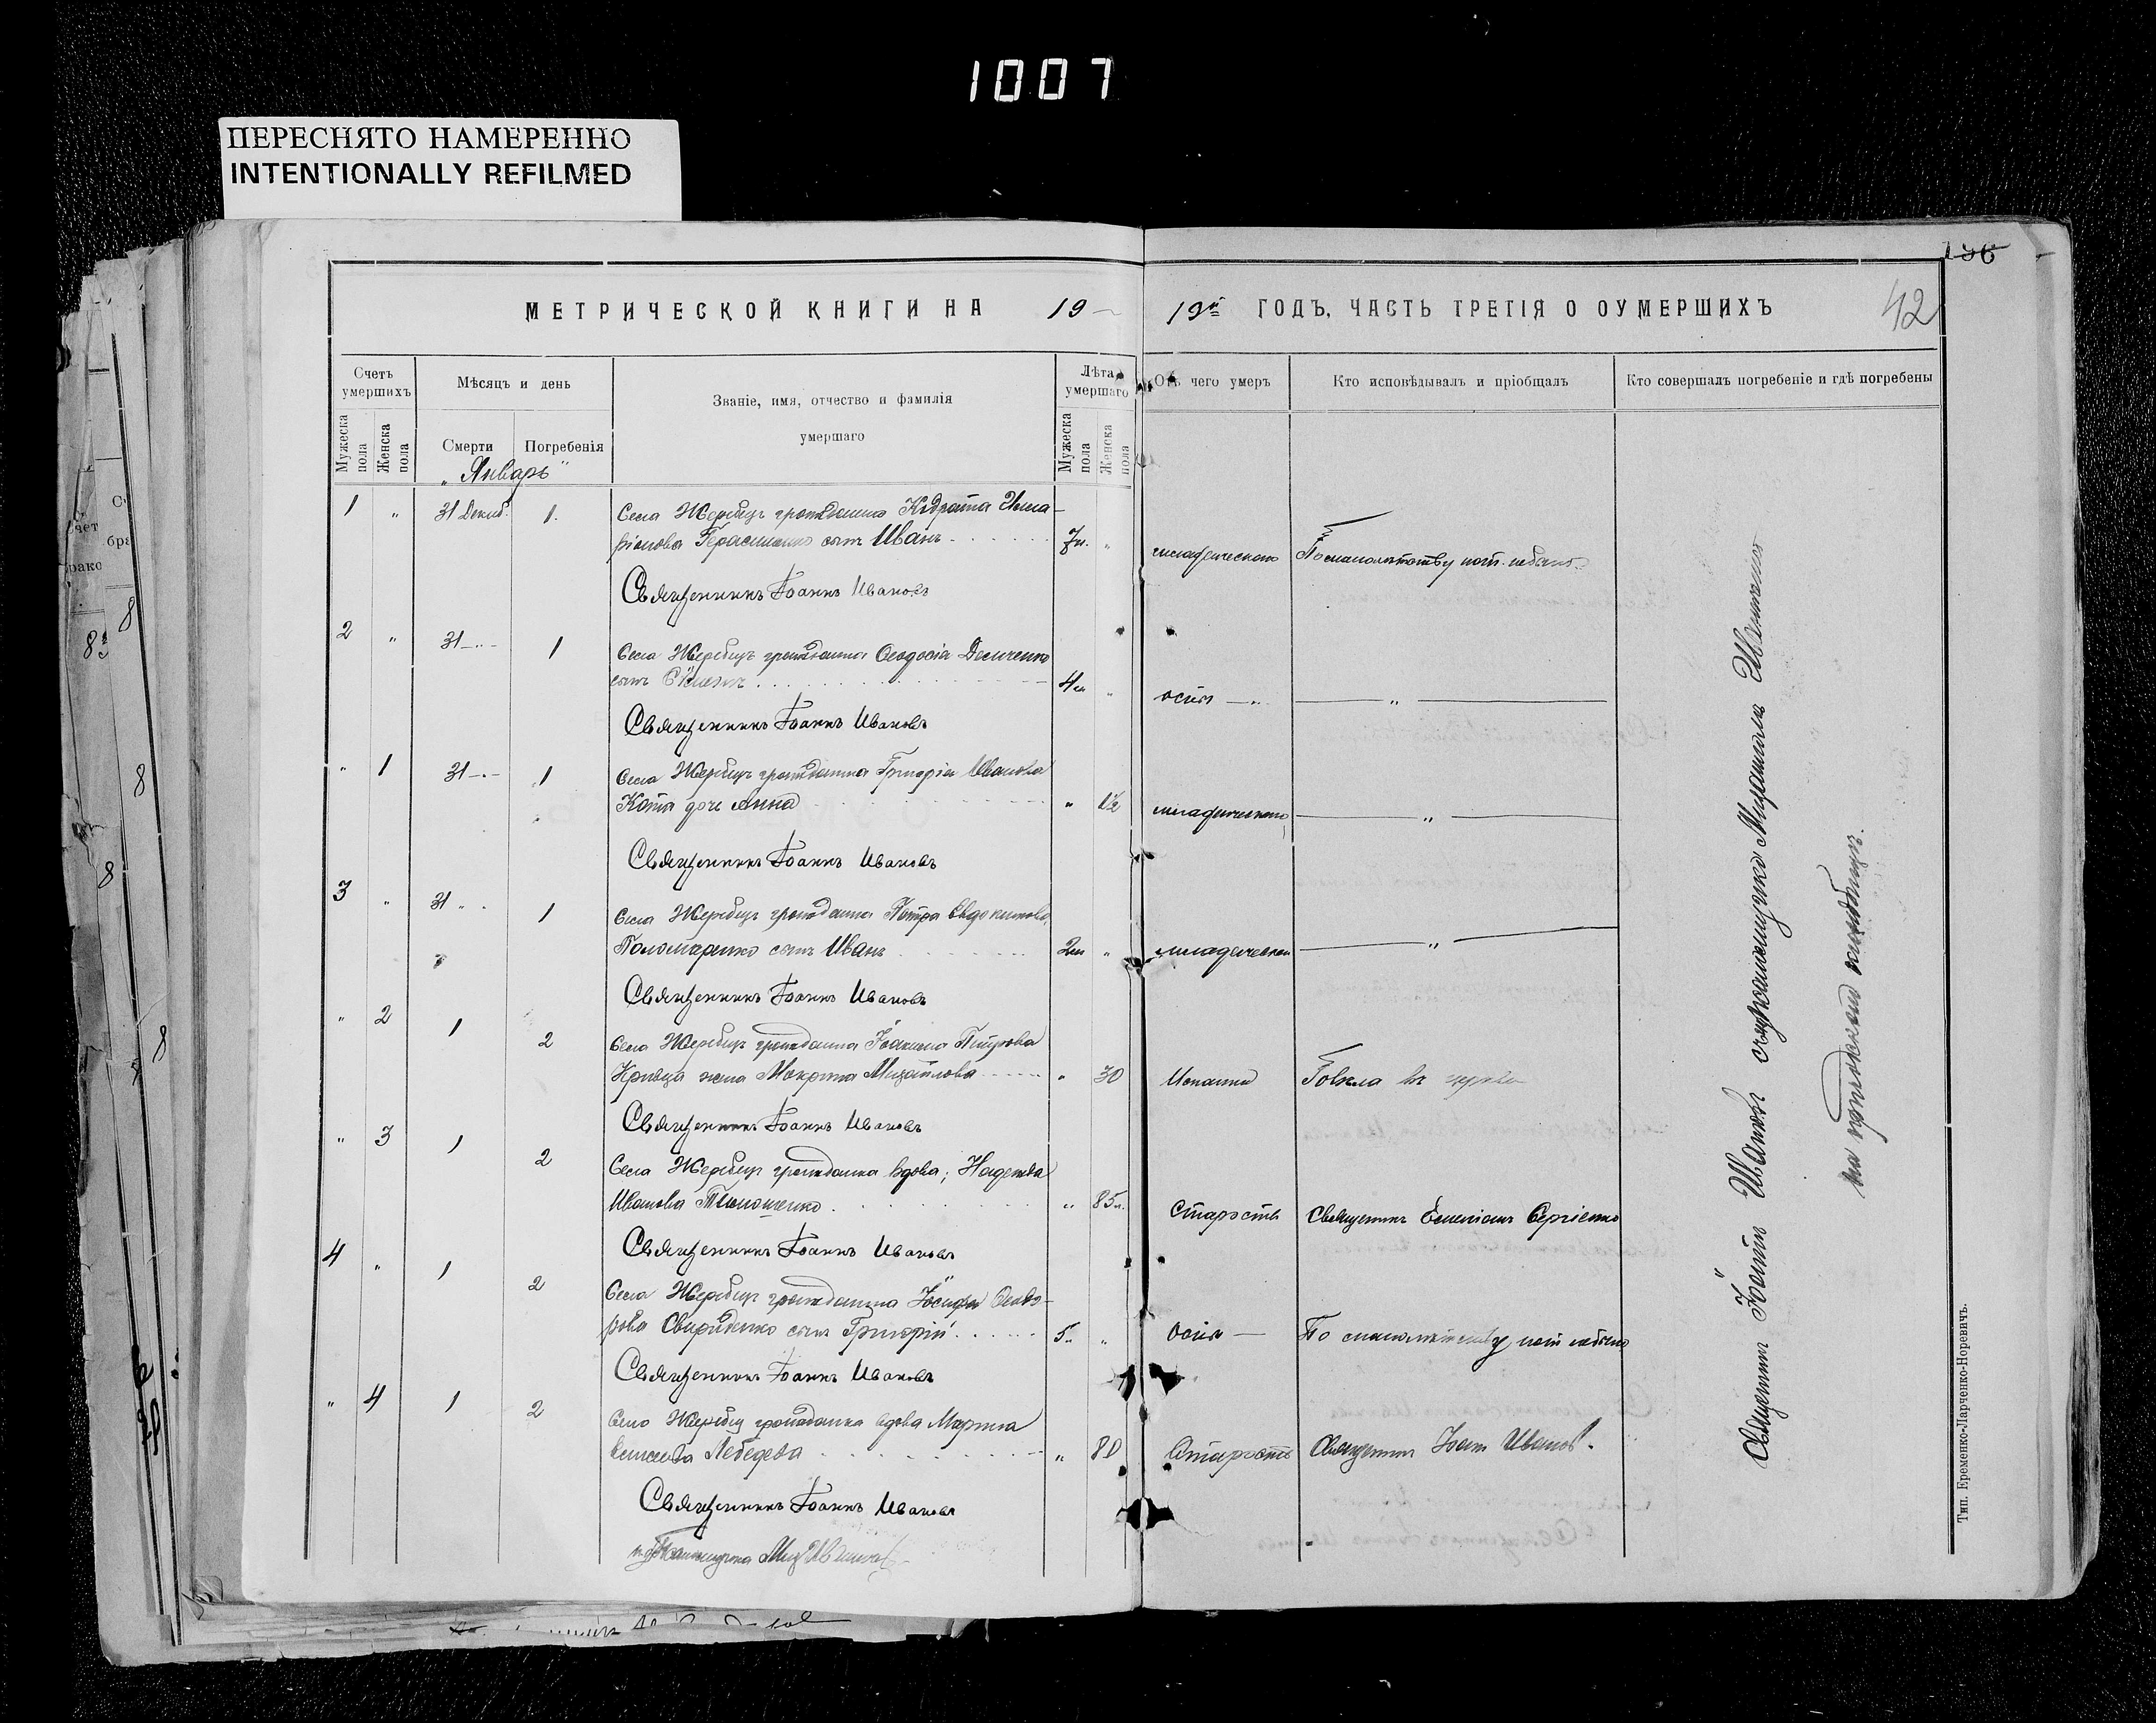 1007
ПЕРЕСНЯТО НАМЕРЕННО
INTENTIONALLY REFILMED
МЕТРИЧЕСКОЙ КНИГИ НА 19
19й ГОДЪ, ЧАСТЬ ТРЕТІЯ О ОУМЕРШИХЪ
42
Счетъ умершихъ
Мужеска пола
Женска пола
Мѣсяцъ и день
Смерти
Погребенія
Званіе, имя, отчество и фамилія
умершаго
Лѣта умершаго
Мужеска пола
Женска пола
Отъ чего умеръ
Кто исповѣдывалъ и пріобщалъ
Кто совершалъ погребеніе и гдѣ погребены
„Январь"
1 " 31 Декаб. 1.
Села Жеребецъ гражданина
Герасименко сынъ Иванъ
7м. "
младенческаго
По малолѣтству
Священникъ Іоаннъ Ивановъ
2 " 31 1
Села Жеребецъ гражданина Ѳеодосія Демченко
сынъ
4м "
оспы
"
Священникъ Іоаннъ Ивановъ
" 1 31 1
Села Жеребецъ гражданина Григорія Иванова
дочь Анна
" 1½
младенческаго
"
Священникъ Іоаннъ Ивановъ
3 " 31 1
Села Жеребецъ гражданина Петра Евдокимова
Пономаренко сынъ Иванъ
2м "
младенческой
"
Священникъ Іоаннъ Ивановъ
" 2 1 2
Села Жеребецъ гражданина Іоакима Петрова
Кривца жена Мокрина Михайлова
" 30
Испанки
Говѣла въ церкви
Священникъ Іоаннъ Ивановъ
" 3 1 2
Села Жеребецъ гражданка вдова; Надежда
Иванова Тимошенко
" 85л.
Старость
Священникъ Сергіенко
Священникъ Іоаннъ Ивановъ
4 " 1 2
Села Жеребецъ гражданина Іосифа Ѳеодо-
рова Свириденко сынъ Григорій
5 "
Оспы
По малолѣтству
Священникъ Іоаннъ Ивановъ
" 4 1 2
Села Жеребец гражданка вдова Марина
Лебедева
" 80
Старость
Священник Іоан Иванов.
Священникъ Іоаннъ Ивановъ
Священникъ Іоаннъ Ивановъ
на приходскомъ кладбищѣ.
Тип. Еременко-Ларченко-Норевичъ.